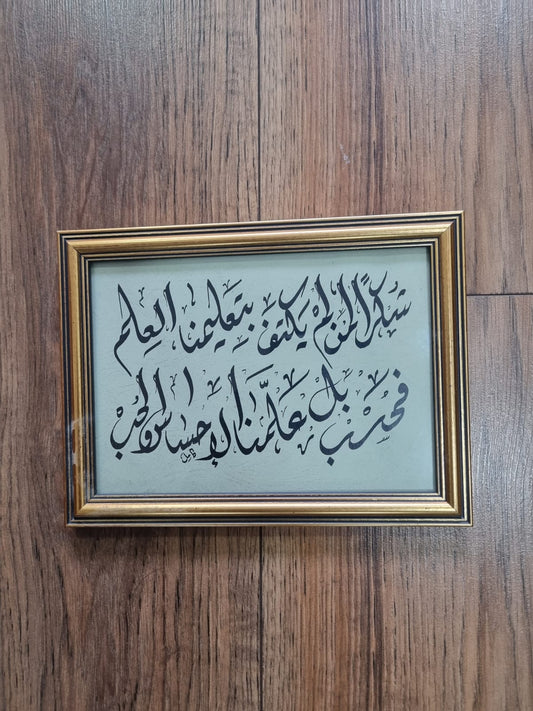 شكراً لمن لم يكتف بتعليمنا العلم
فحسب بل علّمنا الإحساس والحب